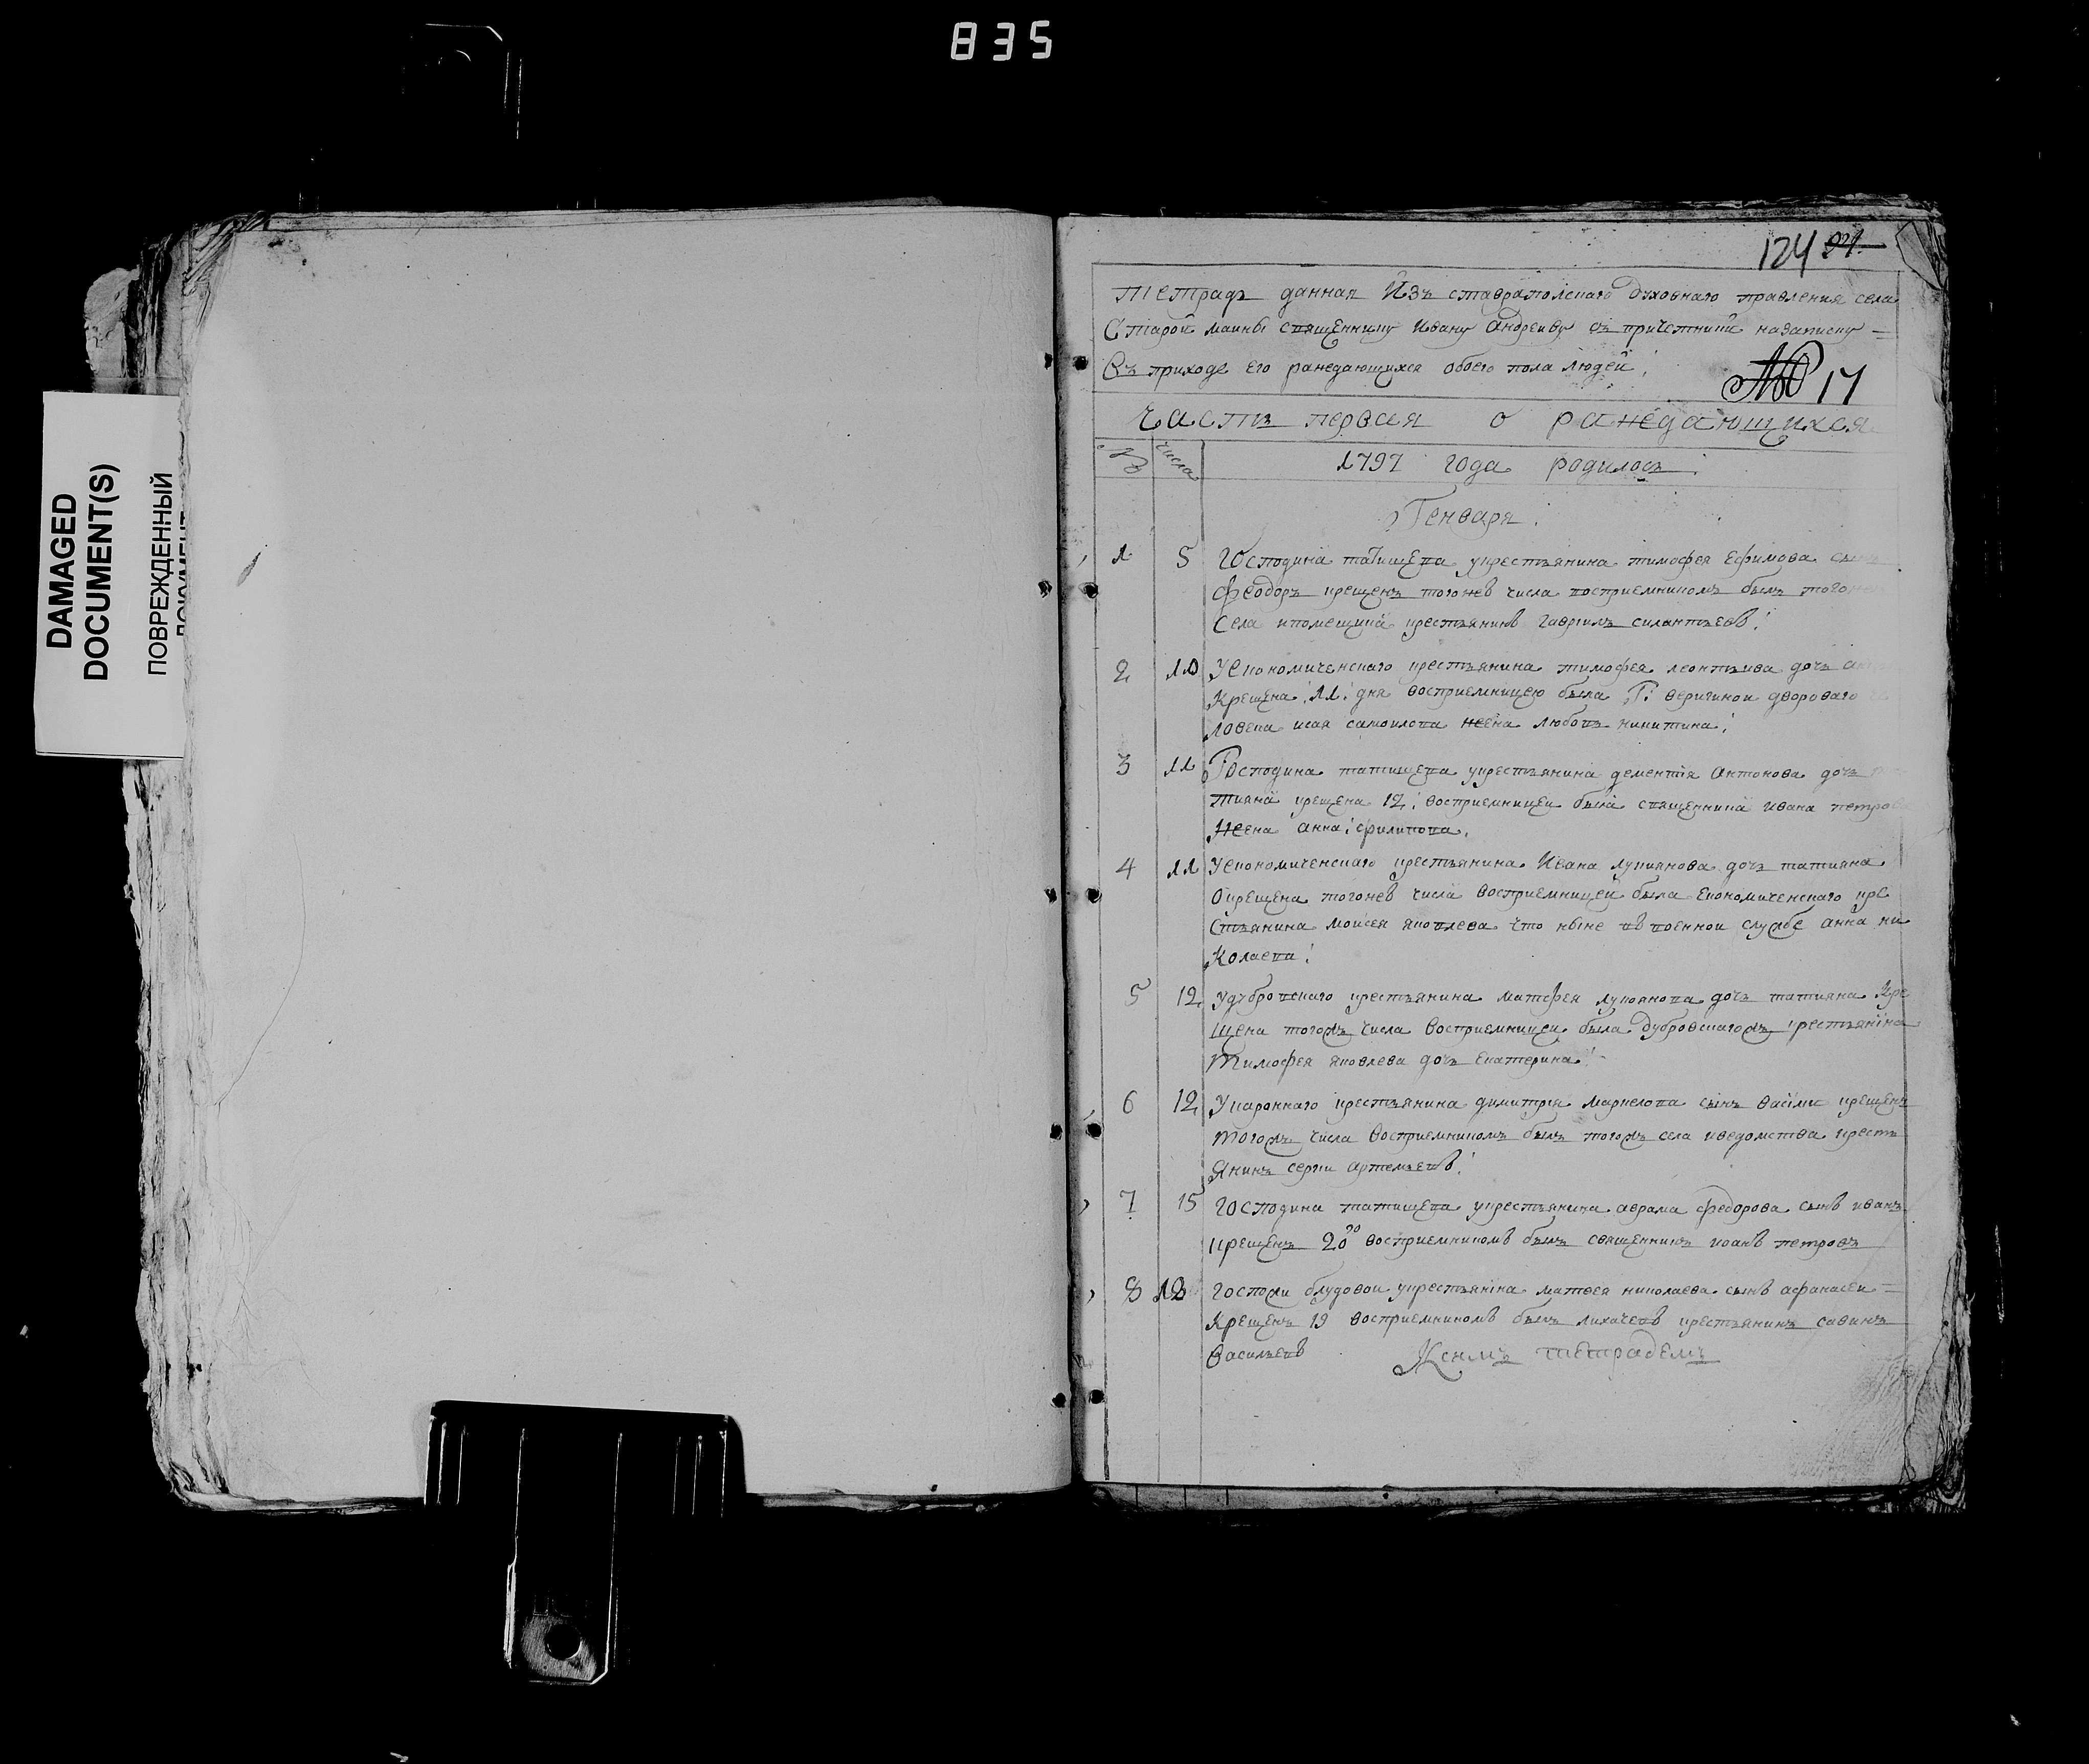 835
DAMAGED
DOCUMENT(S)
ПОВРЕЖДЕННЫЙ
124
Тетрадь данная Изъ ставрапольскаго духовнаго правления села
Старой маины священнику Ивану Андрееву съ причетники назаписку =
Въ приходе его раждающихся обоего пола людей
№ 17
Часть первая о раждающихся
№ числа 1797 года родилось
Генваря
1 5 Господина татищева укрестьянина тимофея Ефимова сынъ
Феодоръ крещенъ тогожъ числа восприемникомъ былъ тогожъ
Села ипомещика крестьянинъ гавриилъ силантьевъ
2 10 Уекономическаго крестьянина тимофея леонтьива дочь
Крещена 11: дня восприемницею была Г: веригиной двороваго
ловека исая самоилова жена любовь никитина
3 11 Господина татищева укрестьянина дементия Антонова дочь
тияна крещена 12: восприемницеи была священника ивана петрова
жена анна филипова
4 11 Уекономическаго крестьянина Ивана лукиянова дочь татияна
Окрещена тогожъ числа восприемницей была економическаго кре
стьянина моисея яковлева что ныне въ военнои службе анна ни
Колаева
5 12 удубровскаго крестьянина матфея лукоянова дочь татияна Кре
щена тогожъ числа восприемницеи была дубровскагожъ крестьянина
Тимофея яковлева дочь екатерина
6 12 крестьянина димитрия маркелова сынъ василии крещенъ
тогожъ числа восприемникомъ былъ тогожъ села иведомства кресть
янинъ сергии артемьевъ
7 15 господина татищева укрестьянина аврама федорова сынъ иванъ
крещенъ 20го восприемникомъ былъ священникъ иоанъ петровъ
8 18 госпожи блудовои укрестьянина матвея николаева сынъ афанасеи =
крещенъ 19 восприемникомъ былъ лихачевъ крестьянинъ савинъ
Васильевъ Ксимъ тетрадемъ